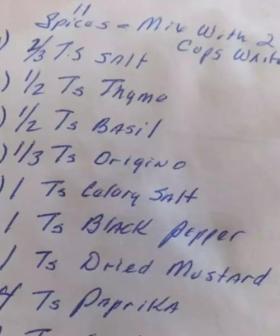 11
Spices = Mix With 2
Cups White
) 2/3 TS SAlt
) 1/2 Ts Thyme
) 1/2 Ts BASil
) 1/3 Ts Origino
) 1 Ts Celory SAlt
1 Ts BlAck Pepper
1 Ts Dried Mustard
4 Ts PApriKA